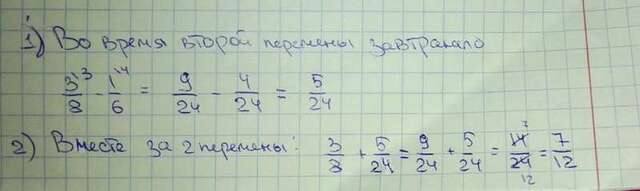 1) Во время второй перемены завтракало
3/8 ³ - 1/6 ⁴ = 9/24 - 4/24 = 5/24
2) Вместе за 2 перемены: 3/8 + 5/24 = 9/24 + 5/24 = 14/24 7 12 = 7/12